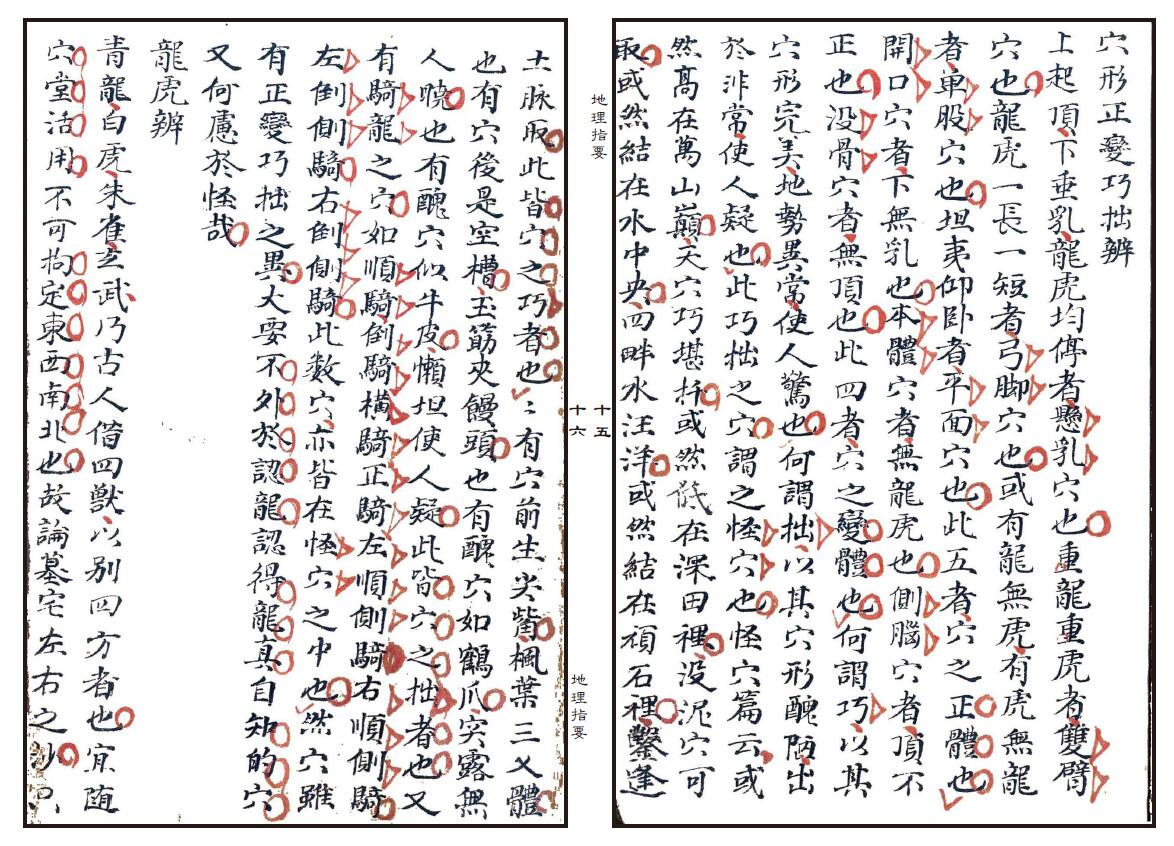 穴形正變巧拙辨
上起頂下垂乳龍虎均停者懸乳穴也重龍重虎者雙臂
穴也龍虎一長一短者弓脚穴也或有龍無虎有虎無龍
者单股穴也坦夷仰卧者平面穴也此五者穴之正體也
開口穴者下無乳也本體穴者無龍虎也側腦穴者頂不
正也没骨穴者無頂也此四者穴之變體也何謂巧以其
穴形完美地勢異常使人驚也何謂拙以其穴形醜陋出
於非常使人疑也此巧拙之穴謂之怪穴也怪穴篇云或
然高在萬山巔天穴巧堪扦或然在深田裡没泥穴可
取或然結在水中央四畔水汪洋或然結在頑石裡鑿逢
地理指要
十五
土脉取此皆穴之巧者也有穴前生尖觜楓葉三乂體
也有穴後是空槽玉筯夾饅頭也有醜穴如鶴爪突露無
人曉也有醜穴似牛皮懶坦使人疑此皆穴之拙者也又
有騎龍之穴如順騎倒騎橫騎正騎左順側騎右順側騎
左倒側騎右倒側騎此數穴亦皆在怪穴之中也然穴雖
有正變巧拙之異大要不外於認龍認得龍真自知的穴
又何慮於怪哉
龍虎辨
青龍白虎朱雀玄武乃古人借四獸以別四方者也宜随
穴堂活用不可拘定東西南北也故論墓宅左右之沙只
十六
地理指要